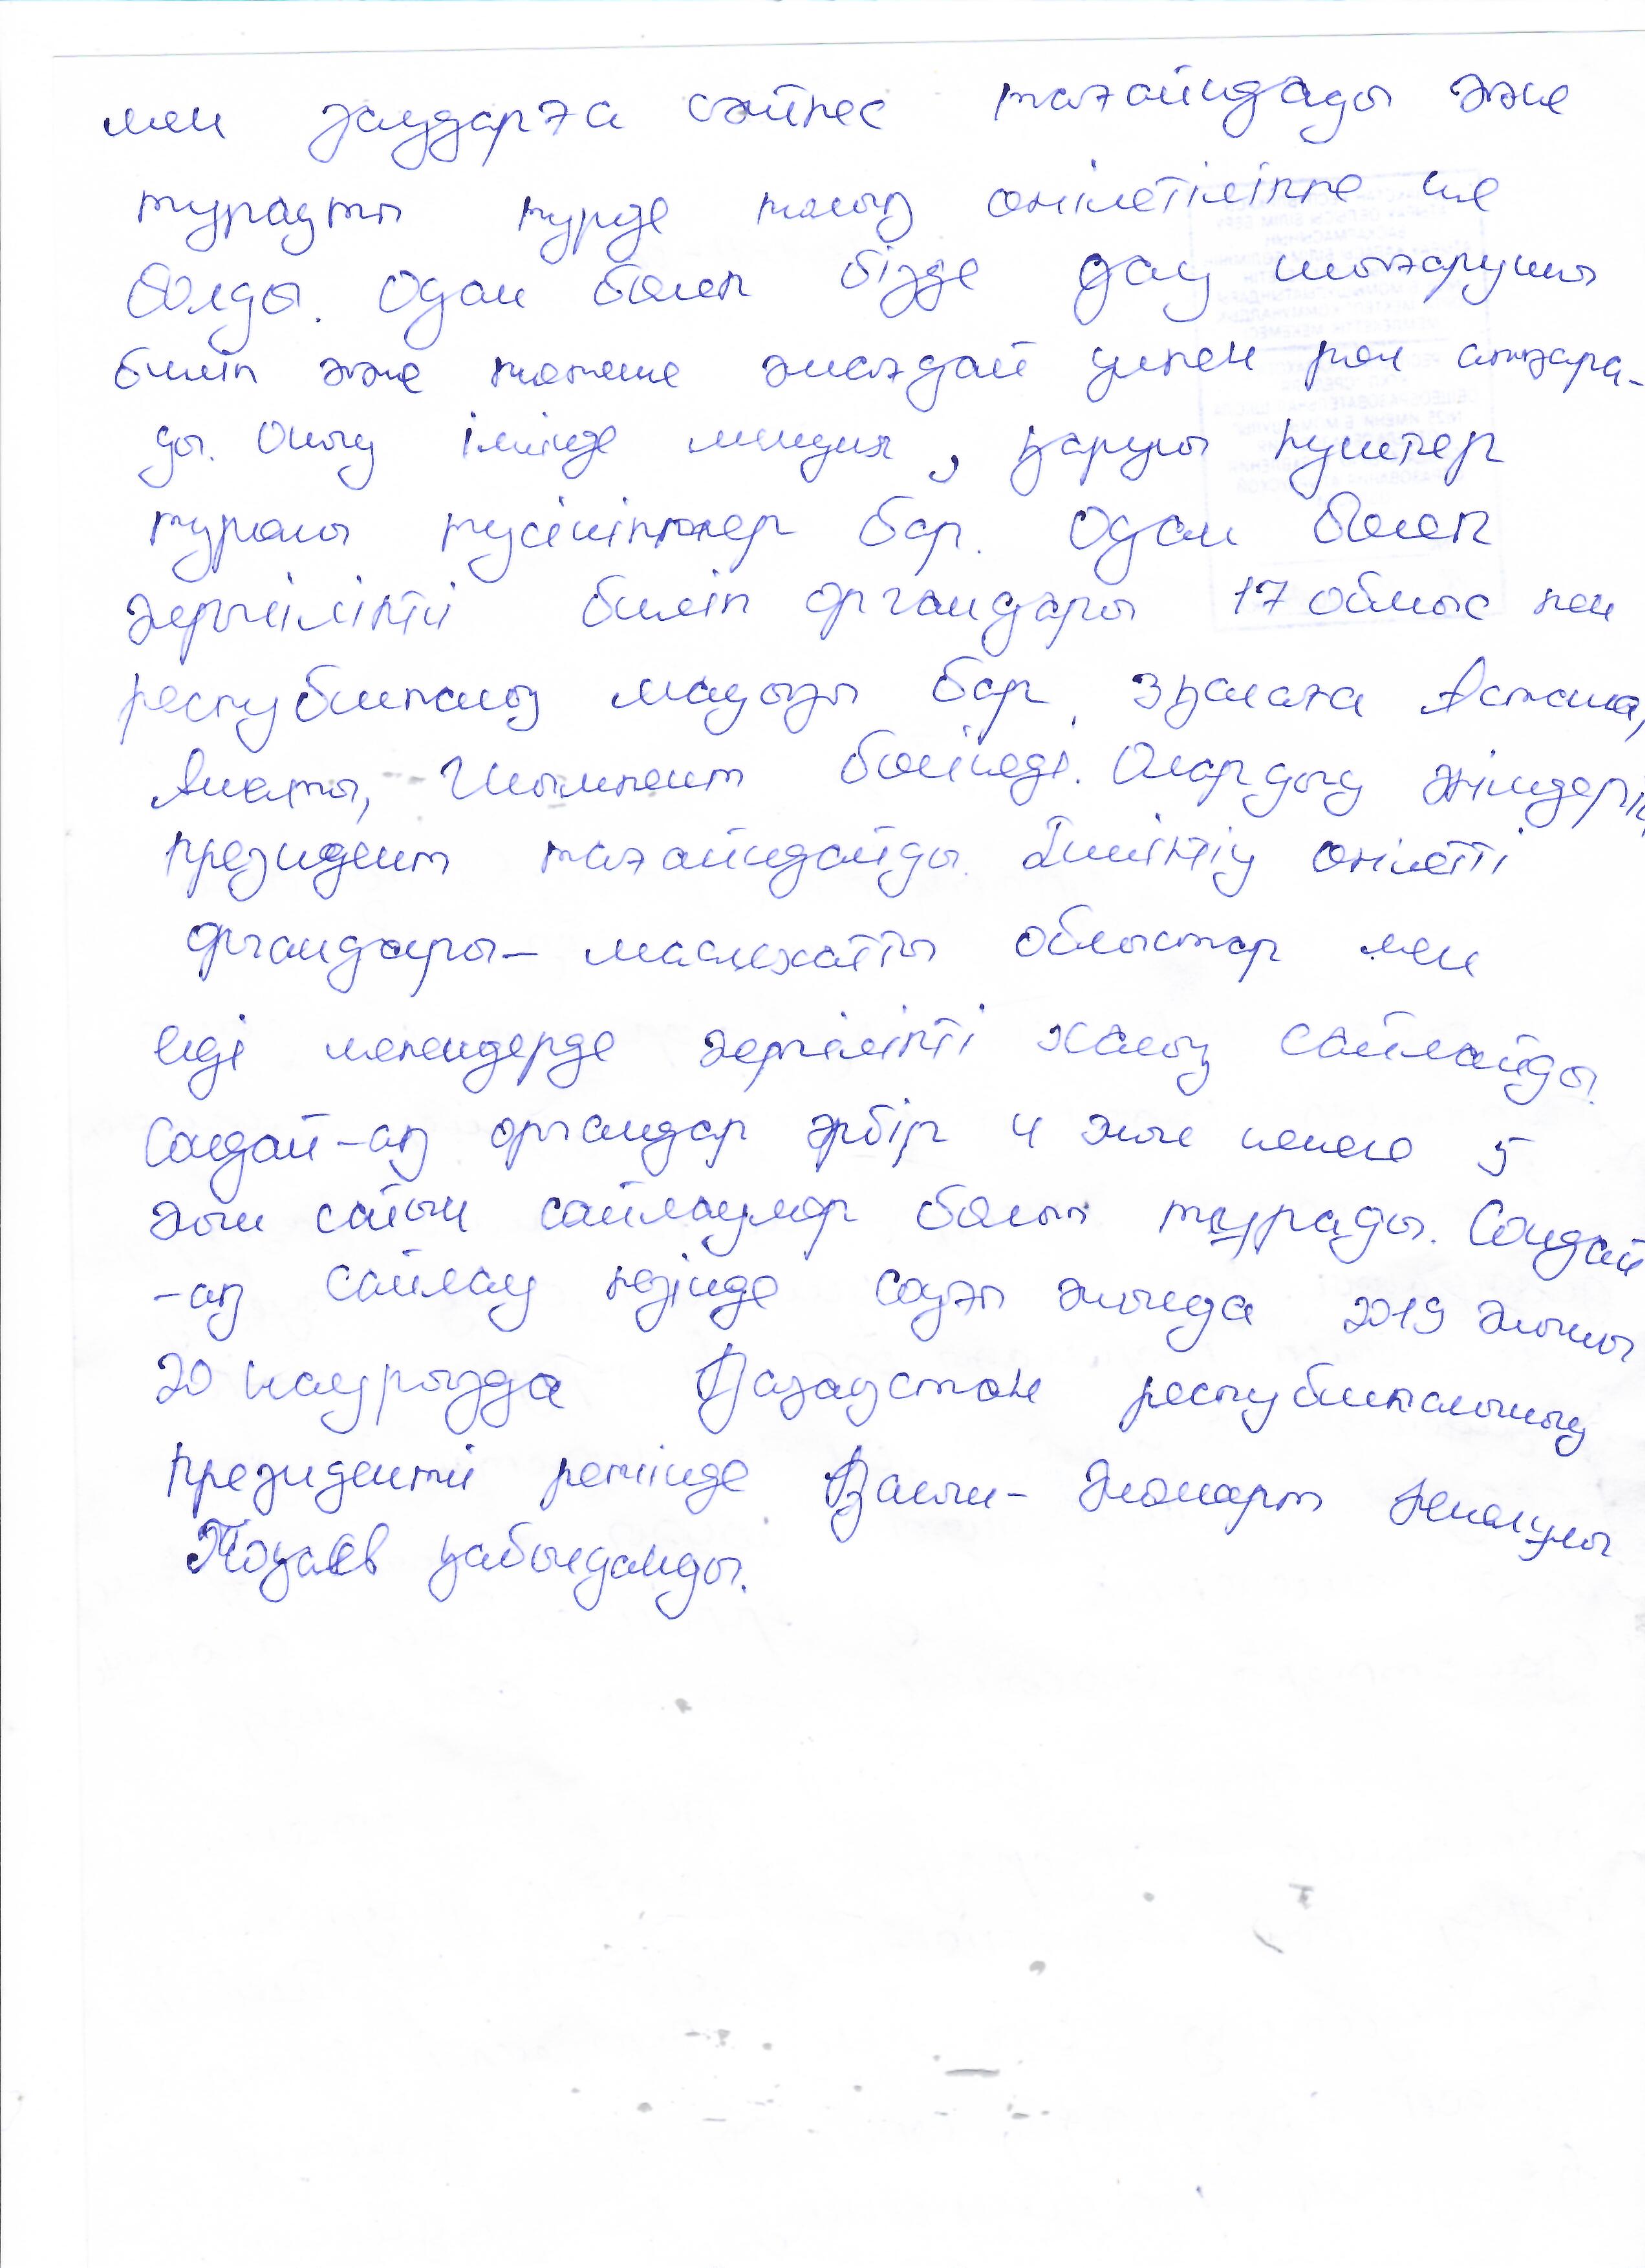 мен заңдарға сәйкес тағайындады және
тұрақты түрде толық өкілеттілікке ие
болды. Одан бөлек бізде заң шығарушы
билік және төтенше жағдай үлкен рөл атқара-
ды. Оның ішінде милиция, қарулы күштер
туралы түсініктер бар. Одан бөлек
жергілікті билік органдары 17 облыс пен
республикалық маңызы бар 3 қалаға Астана,
Алматы, Шымкент бөлінеді. Олардың әкімдерін
президент тағайындайды. Биліктің өкілетті
органдары – маслихатты облыстар мен
елді мекендерде жергілікті халық сайлайды.
Сондай-ақ органдар әрбір 4 жыл немесе 5
жыл сайын сайлаулар болып тұрады. Сондай
-ақ сайлау кезінде соңғы жылда 2019 жылы
20 наурызда Қазақстан республикасының
президенті ретінде Қасым-Жомарт Кемелұлы
Тоқаев қабылданды.